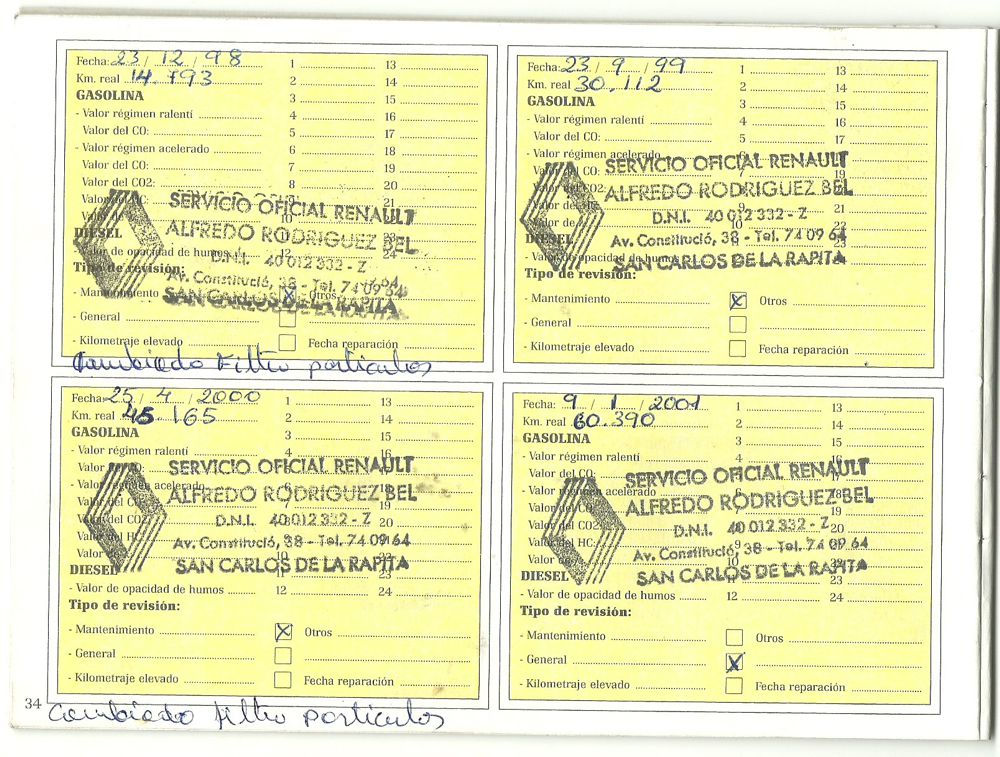 Fecha: 23 / 12 / 98 1 13
Km. real 14.793 2 14
GASOLINA 3 15
- Valor régimen ralentí 4 16
Valor del CO: 5 17
- Valor régimen acelerado 6 18
Valor del CO: 7 19
Valor del CO2: 8 20
Valor del HC: 9
SERVICIO OFICIAL RENAULT
10
ALFREDO RODRIGUEZ BEL
DIESEL 11 23
D.N.I. 40 012 332 - Z
- Valor de opacidad de humos 12 24
Av. Constitució, 38 - Tel. 74 09 64
Tipo de revisión:
SAN CARLOS DE LA RAPITA
- Mantenimiento X Otros
- General
- Kilometraje elevado Fecha reparación
Cambiado Filtro particulos
Fecha: 23 / 9 / 99 1 13
Km. real 30.112 2 14
GASOLINA 3 15
- Valor régimen ralentí 4 16
Valor del CO: 5 17
- Valor régimen acelerado 6 18
SERVICIO OFICIAL RENAULT
Valor del CO: 19
Valor del CO2: 20
ALFREDO RODRIGUEZ BEL
21
D.N.I. 40 012 332 - Z
10 22
Av. Constitució, 38 - Tel. 74 09 64
DIESEL 23
- Valor de opacidad de humos
SAN CARLOS DE LA RAPITA
Tipo de revisión:
- Mantenimiento X Otros
- General
- Kilometraje elevado Fecha reparación
Fecha: 25 / 4 / 2000 1 13
Km. real 45.165 2 14
GASOLINA 3 15
- Valor régimen ralentí 4 16
Valor del CO:
SERVICIO OFICIAL RENAULT
- Valor régimen acelerado 6 18
ALFREDO RODRIGUEZ BEL
Valor del CO: 7 19
Valor del CO2: 20
D.N.I. 40 012 332 - Z
Valor del HC:
Av. Constitució, 38 - Tel. 74 09 64
10 22
SAN CARLOS DE LA RAPITA
DIESEL 11 23
- Valor de opacidad de humos 12 24
Tipo de revisión:
- Mantenimiento X Otros
- General
- Kilometraje elevado Fecha reparación
34
Cambiado Filtro particulos
Fecha: 9 / 1 / 2001 1 13
Km. real 60.390 2 14
GASOLINA 3 15
- Valor régimen ralentí 4 16
Valor del CO: 17
SERVICIO OFICIAL RENAULT
- Valor régimen acelerado 18
ALFREDO RODRIGUEZ BEL
Valor del CO: 19
Valor del CO2: 20
D.N.I. 40 012 332 - Z
Valor del HC: 9 21
Av. Constitució, 38 - Tel. 74 09 64
10 22
SAN CARLOS DE LA RAPITA
DIESEL 11 23
- Valor de opacidad de humos 12 24
Tipo de revisión:
- Mantenimiento Otros
- General X
- Kilometraje elevado Fecha reparación